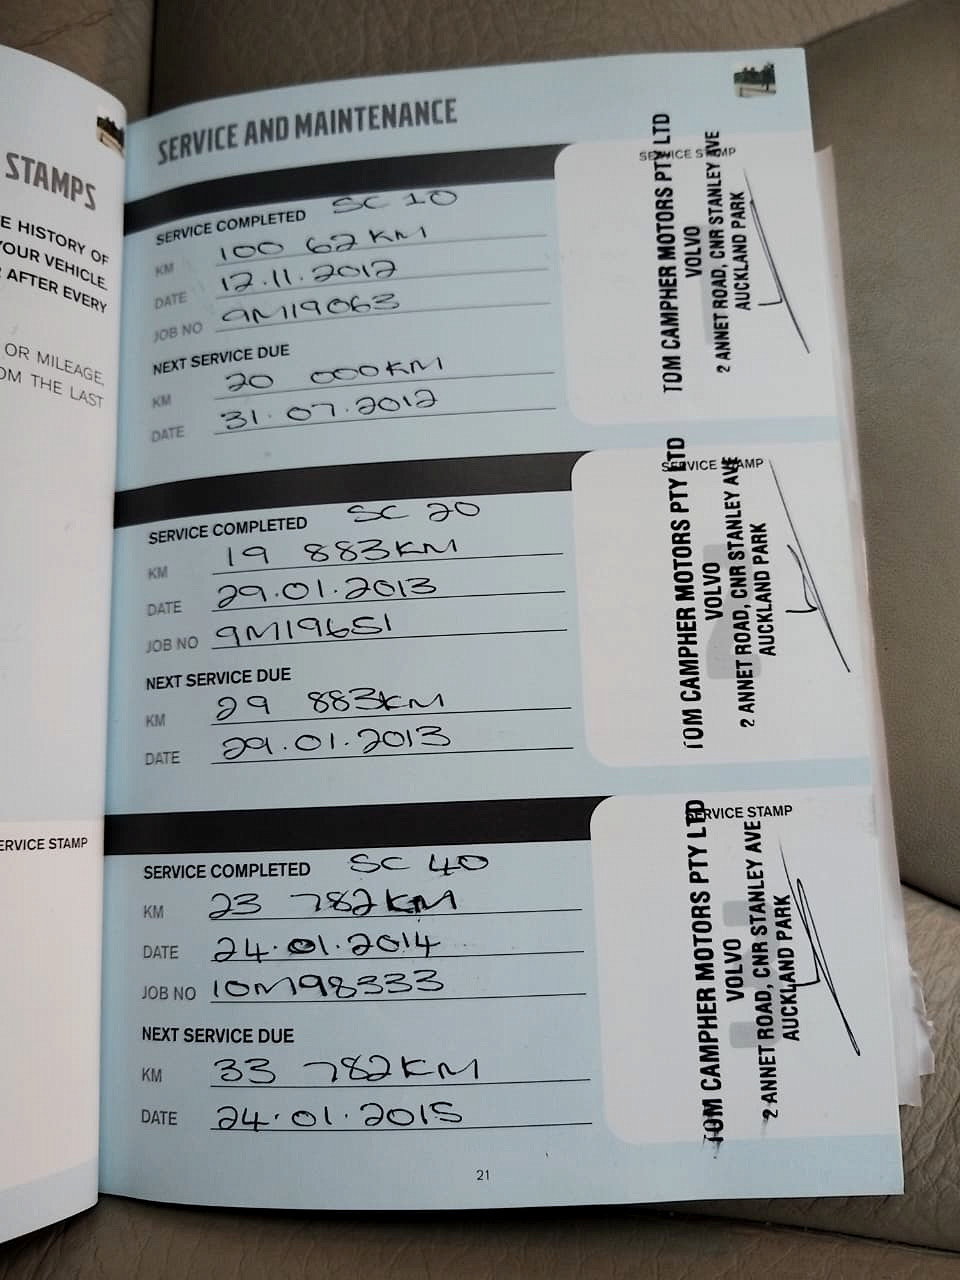 STAMPS
E HISTORY OF
YOUR VEHICLE.
AFTER EVERY
OR MILEAGE,
OM THE LAST
ERVICE STAMP
SERVICE AND MAINTENANCE
SERVICE COMPLETED SC 10
KM 100 62 KM
DATE 12.11.2012
JOB NO 9M19063
NEXT SERVICE DUE
KM 20 000KM
DATE 31.07.2012
SERVICE STAMP
TOM CAMPHER MOTORS PTY LTD
VOLVO
2 ANNET ROAD, CNR STANLEY AVE
AUCKLAND PARK
SERVICE COMPLETED SC 20
KM 19 883KM
DATE 29.01.2013
JOB NO 9M19651
NEXT SERVICE DUE
KM 29 883KM
DATE 29.01.2013
SERVICE STAMP
TOM CAMPHER MOTORS PTY LTD
VOLVO
2 ANNET ROAD, CNR STANLEY AVE
AUCKLAND PARK
SERVICE COMPLETED SC 40
KM 23 782KM
DATE 24.01.2014
JOB NO 10M98333
NEXT SERVICE DUE
KM 33 782KM
DATE 24.01.2015
SERVICE STAMP
TOM CAMPHER MOTORS PTY LTD
VOLVO
2 ANNET ROAD, CNR STANLEY AVE
AUCKLAND PARK
21